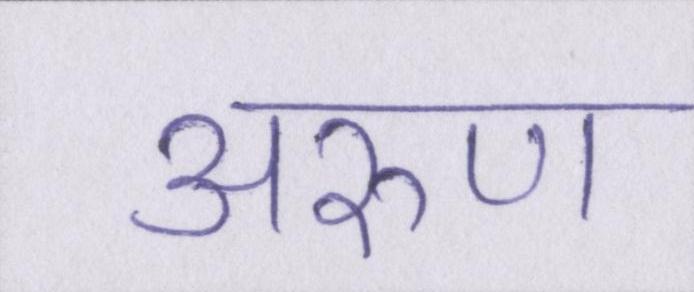 अरुण